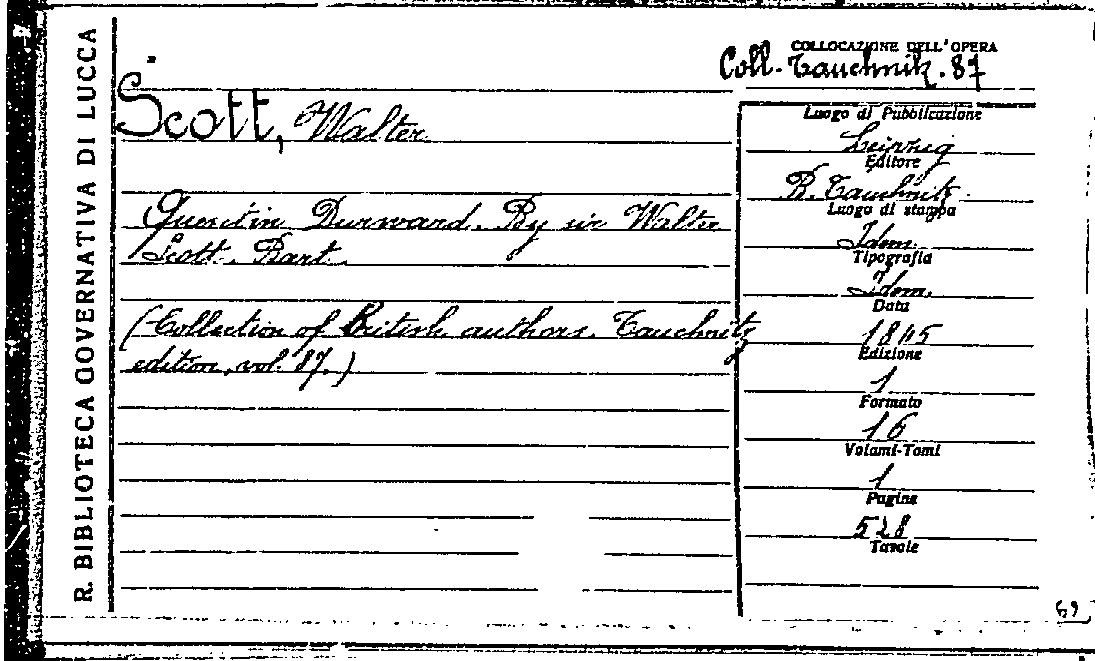 R. BIBLIOTECA GOVERNATIVA DI LUCCA
COLLOCAZIONE DELL'OPERA
Coll. Tauchnitz. 87
Scott, Walter
Quentin Durward. By sir Walter
Scott. Bart.
(Collection of British authors. Tauchnitz
edition, vol. 87.)
Luogo di Pubblicazione
Leipzig
Editore
B. Tauchnitz
Luogo di stampa
Idem.
Tipografia
Idem.
Data
1845
Edizione
1
Formato
16
Volumi-Tomi
1
Pagine
528
Tavole